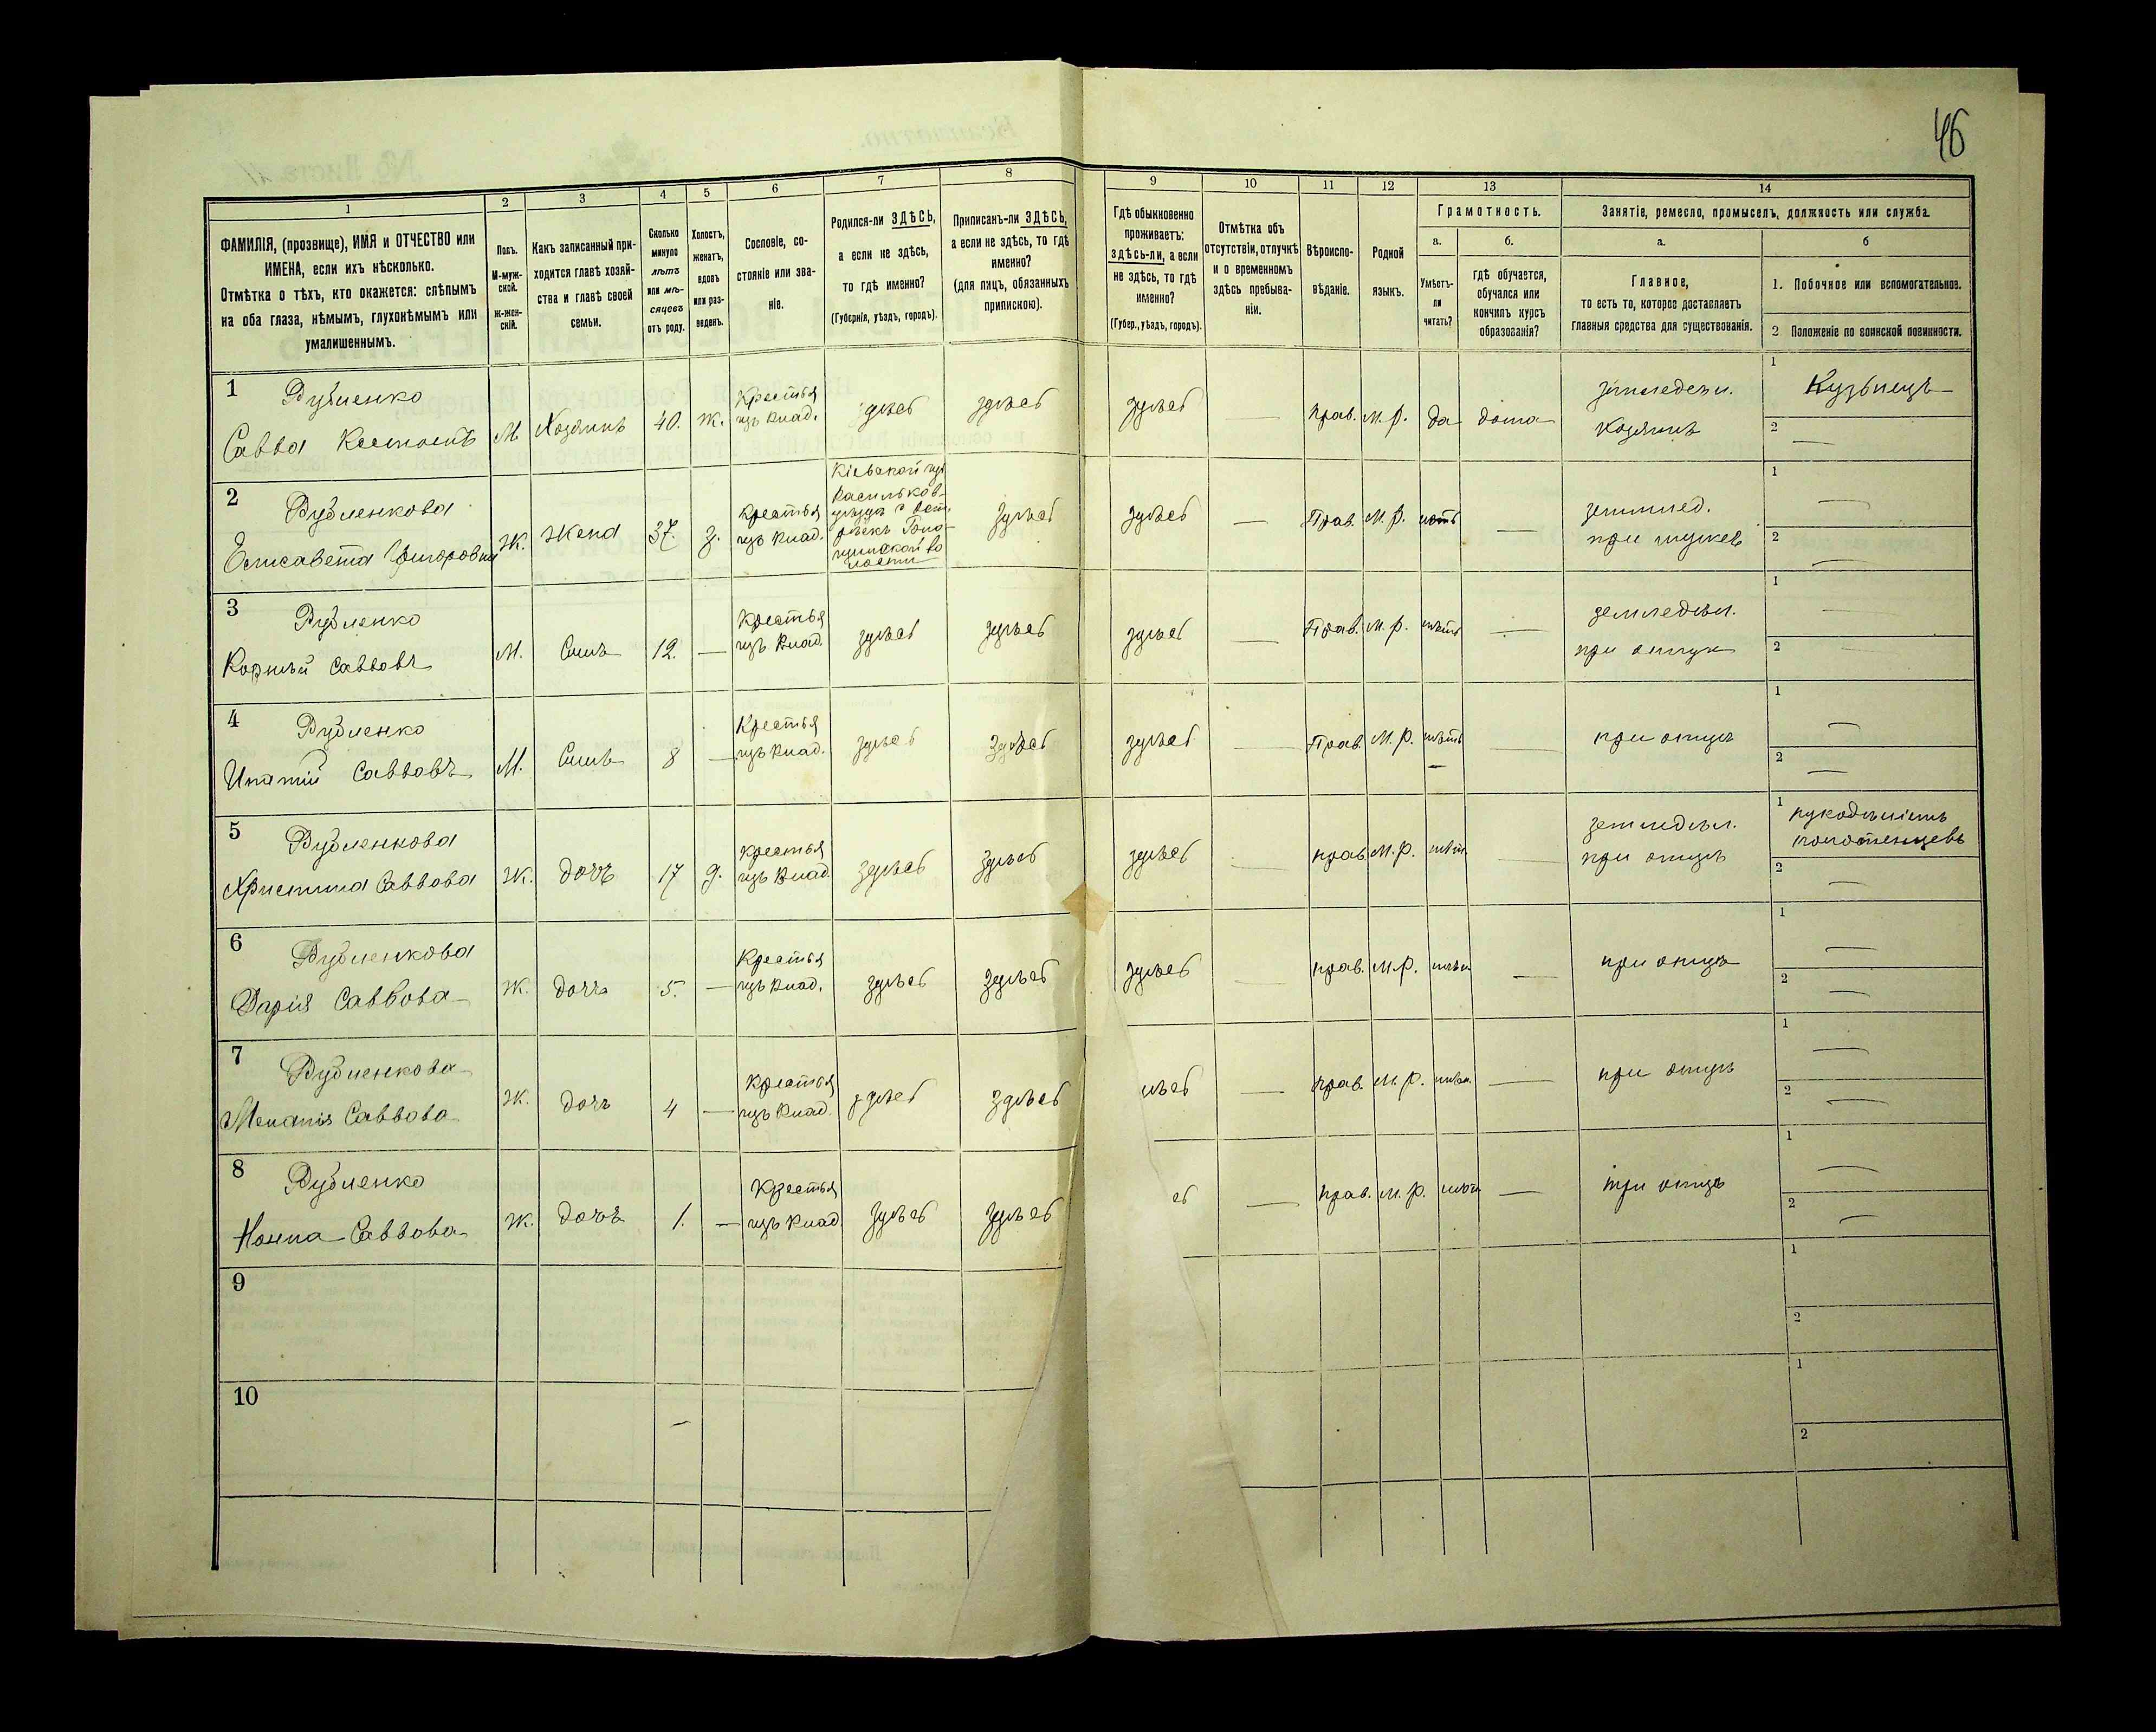 46
1
2
3
4
5
6
7
8
9
10
11
12
13
14
ФАМИЛІЯ, (прозвище), ИМЯ и ОТЧЕСТВО или
ИМЕНА, если ихъ нѣсколько.
Отмѣтка о тѣхъ, кто окажется: слѣпымъ
на оба глаза, нѣмымъ, глухонѣмымъ или
умалишеннымъ.
Полъ.
М-муж-
ской.
ж-жен-
скій.
Какъ записанный при-
ходится главѣ хозяй-
ства и главѣ своей
семьи.
Сколько
минуло
лѣтъ
или мѣ-
сяцевъ
отъ роду.
Холостъ,
женатъ,
вдовъ
или раз-
веденъ.
Сословіе, со-
стояніе или зва-
ніе.
Родился-ли ЗДѢСЬ,
а если не здѣсь,
то гдѣ именно?
(Губернія, уѣздъ, городъ).
Приписанъ-ли ЗДѢСЬ,
а если не здѣсь, то гдѣ
именно?
(для лицъ, обязанныхъ
припискою).
Гдѣ обыкновенно
проживаетъ:
здѣсь-ли, а если
не здѣсь, то гдѣ
именно?
(Губер., уѣздъ, городъ).
Отмѣтка объ
отсутствіи, отлучкѣ
и о временномъ
здѣсь пребыва-
ніи.
Вѣроиспо-
вѣданіе.
Родной
языкъ.
Грамотность.
а.
Умѣетъ-
ли
читать?
б.
гдѣ обучается,
обучался или
кончилъ курсъ
образованія?
Занятіе, ремесло, промыселъ, должность или служба.
а.
Главное,
то есть то, которое доставляетъ
главныя средства для существованія.
б
1. Побочное или вспомогательное.
2 Положеніе по воинской повинности.
1 Рубленко
Савва
М. Хозяинъ 40. ж.
Крестья
изъ влад.
здѣсь здѣсь здѣсь — прав. М. р. да дома
землѣдѣл.
хозяинъ
1 Кузнецъ
2 —
2 Рубленкова
Елисавета
Ж. Жена 37. з.
Крестья
изъ влад.
Кіевской губ
Васильков-
волости
здѣсь здѣсь — Прав. М. р. нѣтъ —
землед.
при мужѣ
1 —
2 —
3 Рубленко
Корнѣй Саввовъ
М. Сынъ 12. —
Крестья
изъ влад.
здѣсь здѣсь здѣсь — Прав. М. р. нѣтъ —
земледѣл.
при отцѣ
1 —
2 —
4 Рубленко
Ипатій Саввовъ
М. Сынъ 8 —
Крестья
изъ влад.
здѣсь здѣсь здѣсь — Прав. М. р. нѣтъ —
при отцѣ
1 —
2 —
5 Рубленкова
Христина Саввова
Ж. дочь 17 д.
крестья
изъ влад.
здѣсь здѣсь здѣсь — прав. М. р. нѣтъ —
земледѣл.
при отцѣ
1 рукодѣліемъ
полотенцевъ
2 —
6 Рубленкова
Дарія Саввова
Ж. дочь 5. —
Крестья
изъ влад.
здѣсь здѣсь здѣсь — прав. М. р. нѣтъ —
при отцѣ
1 —
2 —
7 Рубленкова
Меланія Саввова
Ж. дочь 4 —
Крестья
изъ влад.
здѣсь здѣсь ѣсь — прав. М. р. нѣтъ —
при отцѣ
1 —
2 —
8 Рубленко
Нонна Саввова
Ж. дочь 1. —
Крестья
изъ влад
здѣсь здѣсь сь — прав. М. р. нѣтъ —
при отцѣ
1 —
2 —
9
1
2
10
1
2